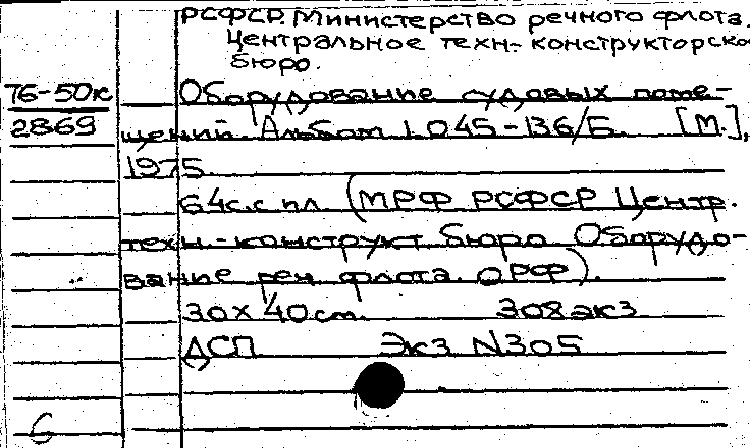 РСФСР. Министерство речного флота.
Центральное техн.-конструкторско
бюро.
76-50к
Оборудование судовых поме-
2869
щений. Альбом 1.045-136/Б. [М.],
1975.
64с. с пл. (МРФ РСФСР Центр.
техн.-конструкт. бюро. Оборудо-
вание реч. флота. ОРФ).
30х40см. 308экз
ДСП Экз N305
6